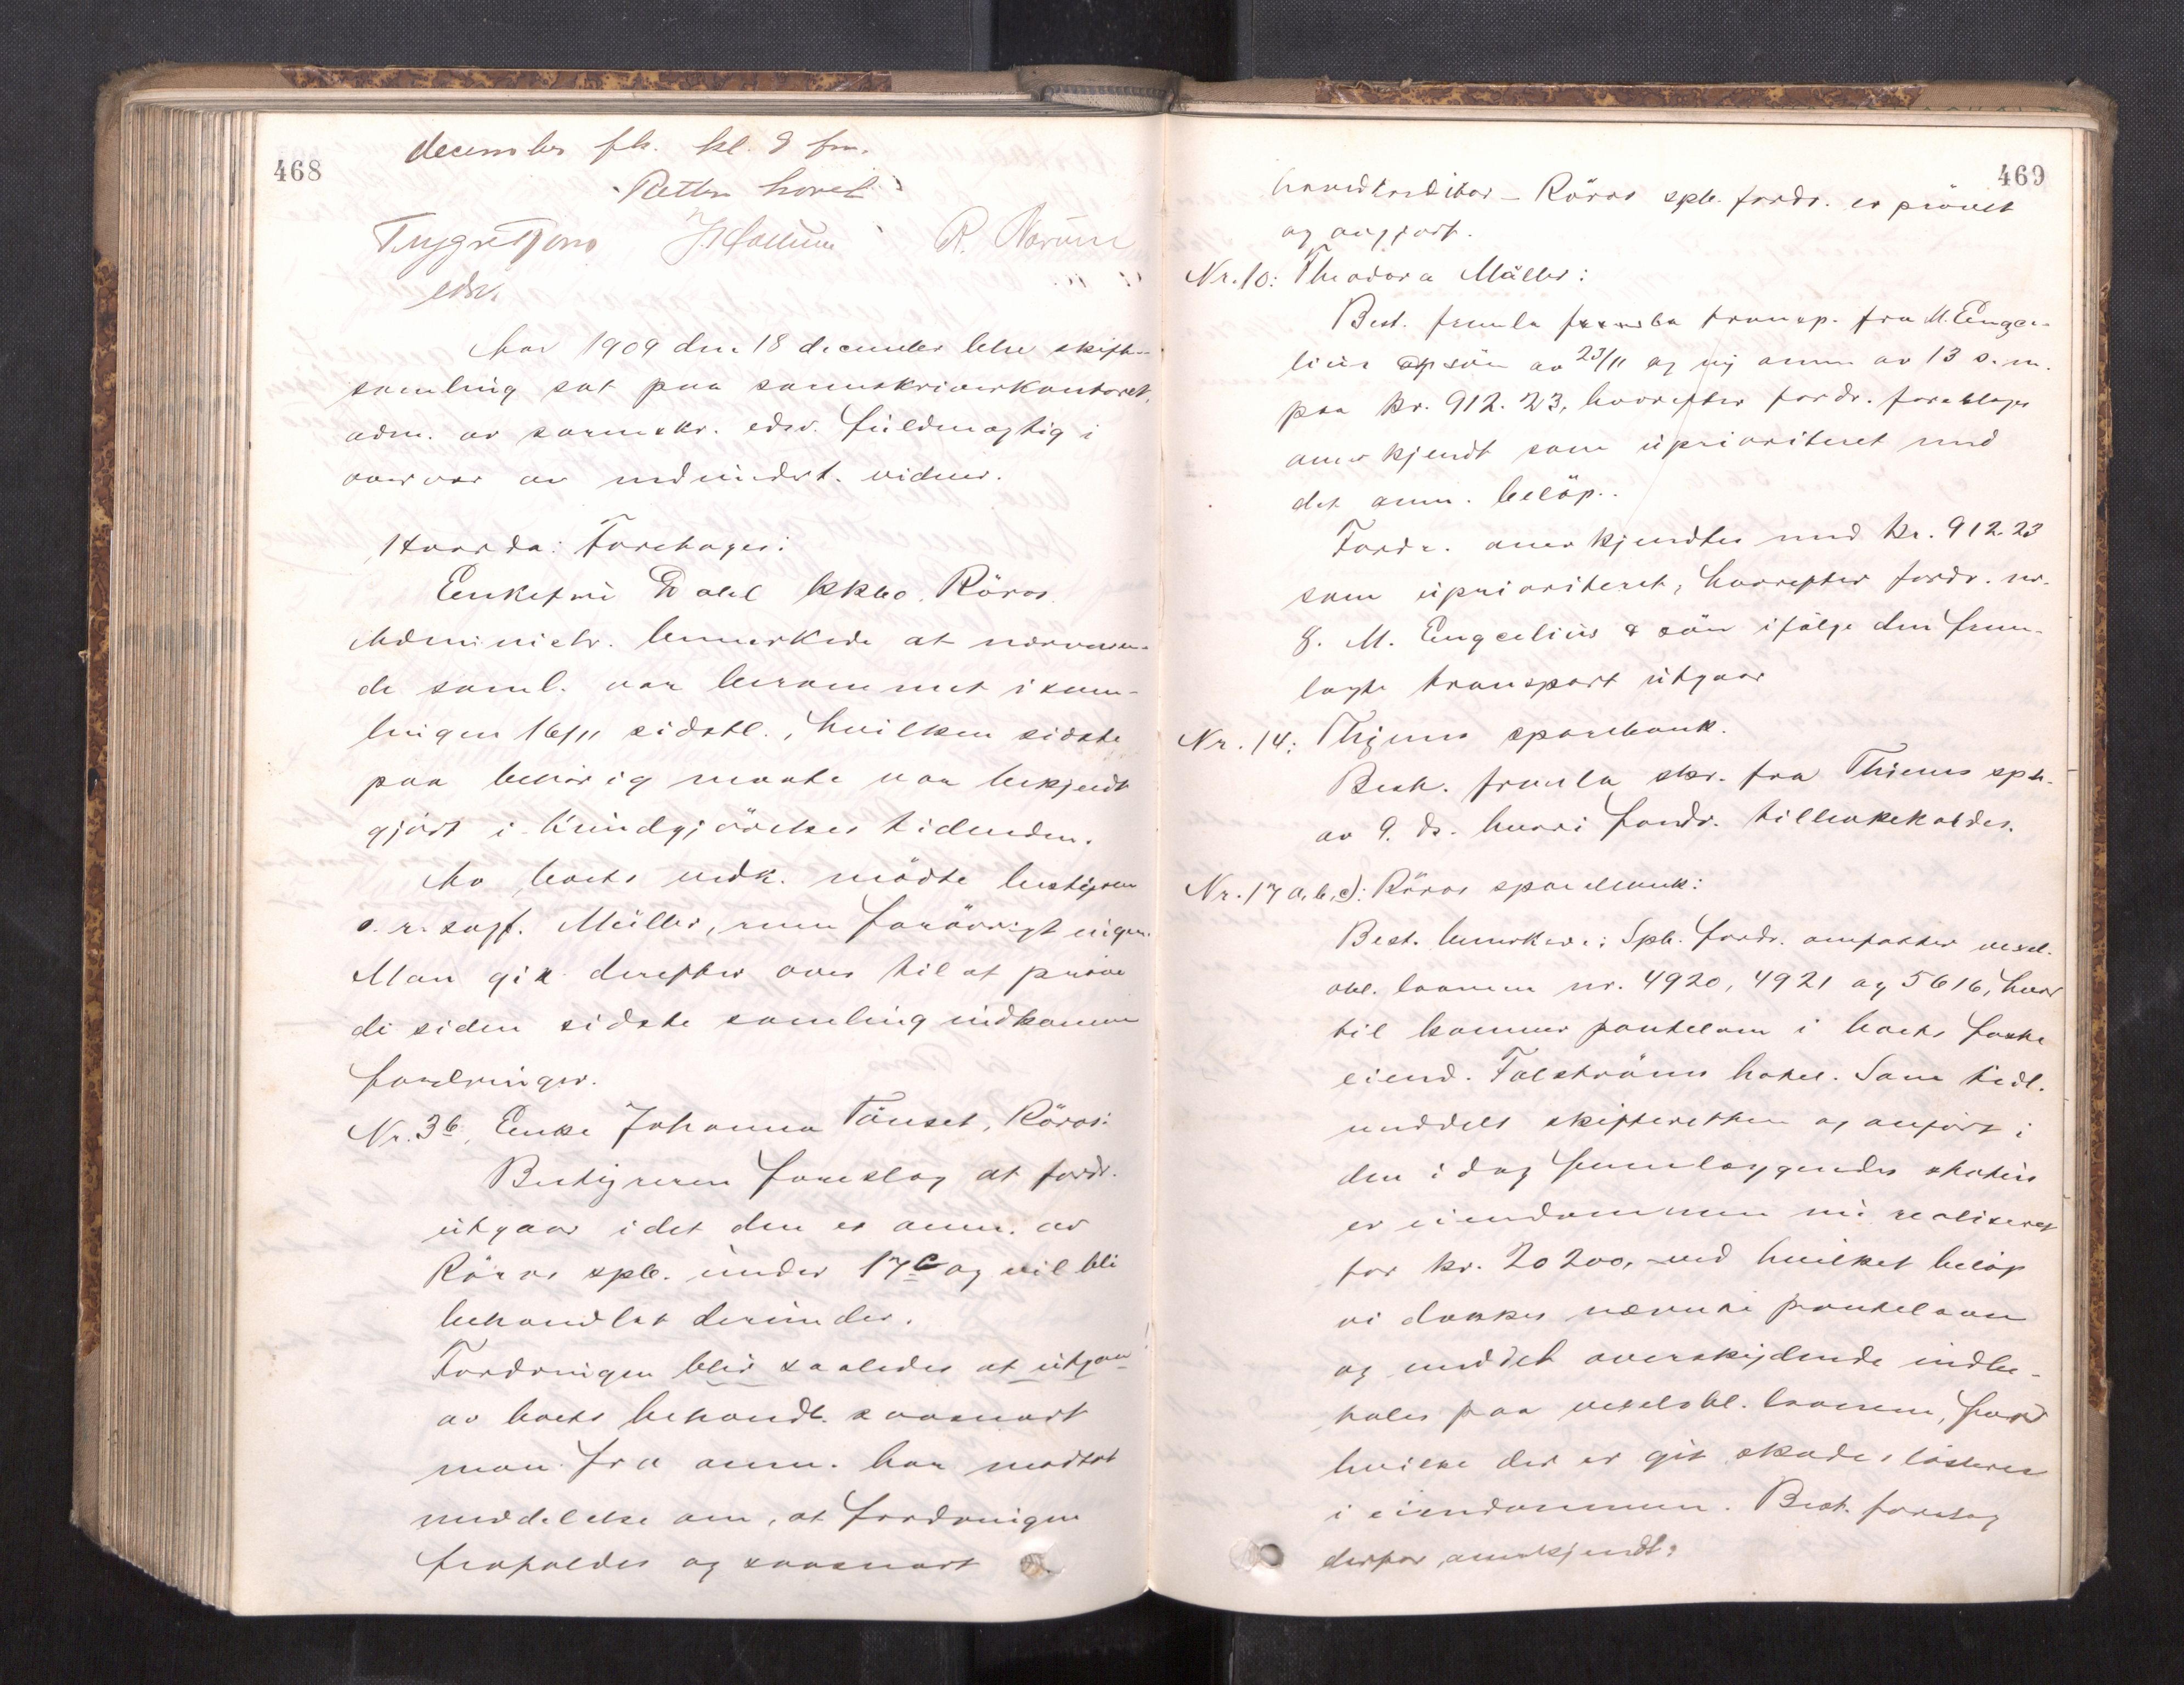 468
december fk. kl. 9 fm.
Retten hævet
Trygve Tønn J Hallum R. Narum
edsv.
Aar 1909 den 18 december blev skifte-
samling sat paa sorenskriverkontoret,
adm. av sorenskr. edsv. fuldmægtig i
overvær av nedundert. vidner.
Hvorda: Foretoges:
Enkefru Dahl kkbo. Röros
Administr. bemerkede at nærværen-
de saml. var berammet i sam-
lingen 16/11 sidstl., hvilken sidste
paa behörig maate var bekjendt
gjört i Kundgjörelses tidenden.
Av boets vedk. mödte bestyreren
o.r.sagf. Müller, men forövrigt ingen.
Man gik derefter over til at pröve
de siden sidste samling indkomne
fordringer.
Nr. 3b, Enke Johanna Tönset, Röros:
Bestyreren foreslog at fordr.
utgaar idet den er anm. av
Röros spb. under 17c og vil bli
behandlet derunder.
Fordringen blir saaledes at utgaa
av boets behandl. saasnart
man fra anm. har mottat
meddelelse om, at fordringen
frafaldes og saasnart
469
hovedkreditor – Röros spb. fordr. er prövet
og avgjort.
Nr. 10: Theodora Müller:
Best. fremla transp. fra M. Engze-
lius & sön av 23/11 og ny anm av 13 d.m.
paa kr. 912.23, hvorefter fordr. foreslages
anerkjendt som uprioriteret med
det anm. belöp.
Fordr. anerkjendtes med kr. 912.23
som uprioriteret, hvorefter fordr. nr.
8. M. Engzelius & sön ifölge den frem-
lagte transport utgaar
Nr. 14: Thjems sparebank.
Best. fremla skr. fra Thjems spb.
av 9. ds. hvori fordr. tilbakekaldes.
Nr. 17 a, b, c): Röros sparebank:
Best. bemerker: Spb. fordr. omfatter vexel-
obl. laanene nr. 4920, 4921 og 5616, hvor
til kommer pantelaan i boets faste
eiend. Falströms hotel. Som tidl.
meddelt skifteretten og anfört i
den i dag fremlæggendes status
er eiendommen nu realiseret
for kr. 20200, ved hvilket belöp
vi dækkes nævnte pantelaan
og med det overskydende indbe-
tales paa vexelobl. laanene, for
hvilke der er git skadeslösbrev
i eiendommen. Best. foreslog
derfor anerkjendt: